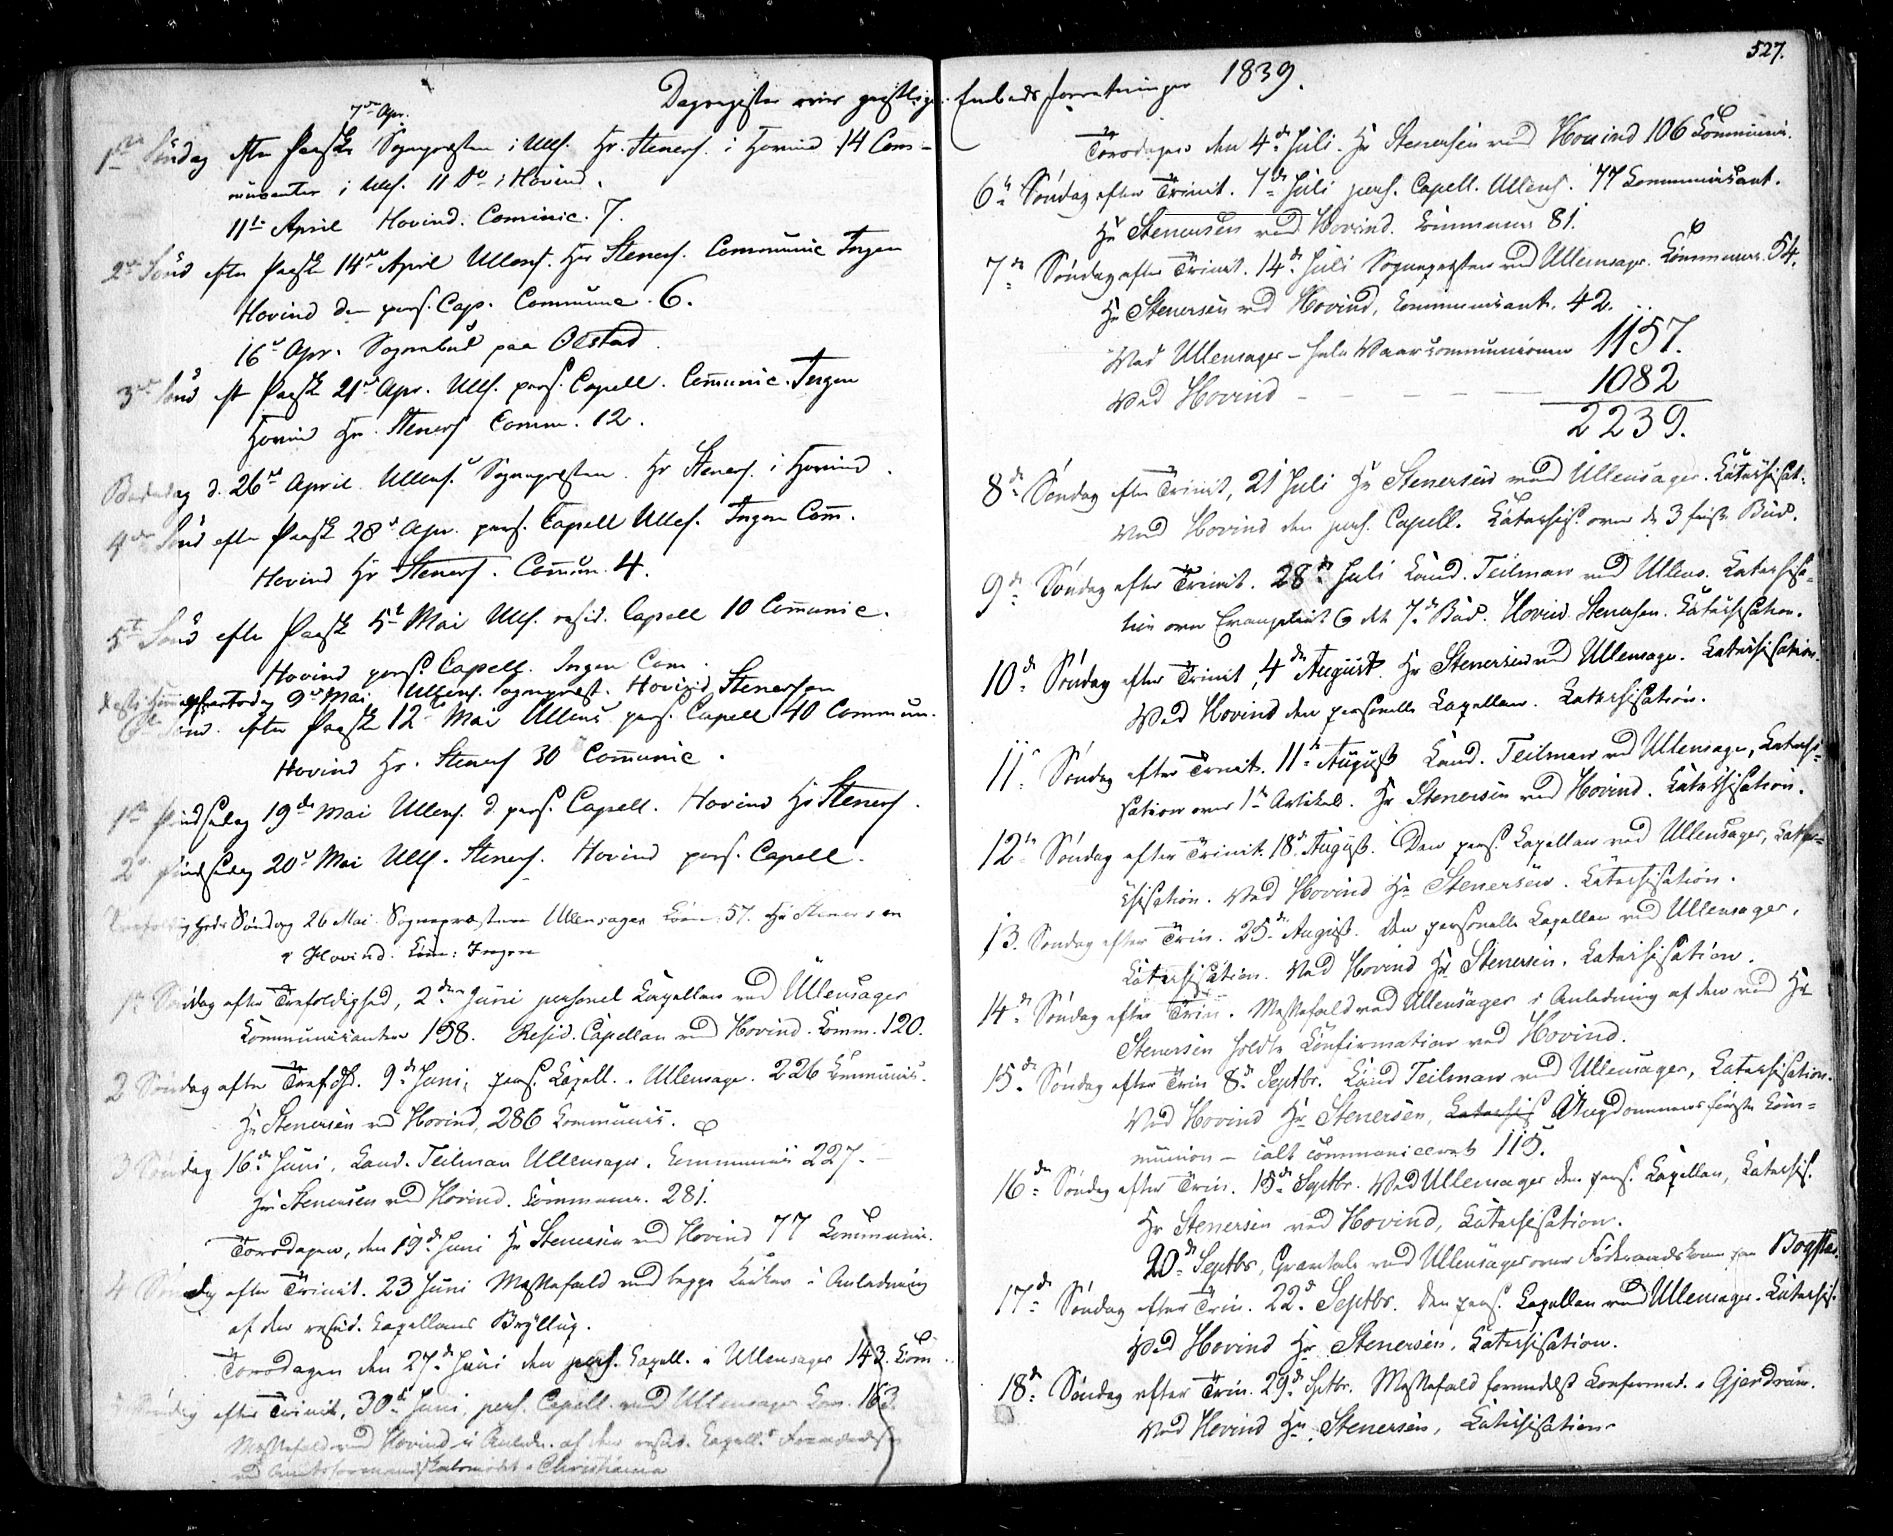 527.
Dagregister over geistlige Embedsforretninger 1839.
7de Apr.
1ste Søndag efter Paaske Sognepræsten i Ulls. Hr. Steners. i Hovind 14 Com-
municanter i Ulls. 11 Do i Hovind.
11te April Hovind. Cominic. 7.
2den Sønd efter Paaske 14de April Ullens. Hr Steners. Communic Ingen
Hovind den pers. Cap. Communic. 6.
16de Apr. Sognebud paa Olstad
3die Sønd eft Paaske 21de Apr. Ulls. pers. Capell. Comunic. Ingen
Hovin Hr. Steners Comm. 12.
Bededag d. 26de April Ullens. Sognepræsten. Hr Steners. i Hovind.
4de Sønd efter Paaske 28de Apr. pers. Capell Ulls. Ingen Com.
Hovind Hr Steners. Commun. 4.
5te Sønd efter Paaske 5te Mai Ulls. resid. Capell 10 Comunic.
Hovind pers. Capell. Ingen Com.
Christi Himmelfartsdag 9de Mai Ullens. Sognepræst. Hovind Stenersen
6te Sønd. efter Paaske 12te Mai Ullens pers. Capell 40 Commun.
Hovind Hr. Steners 30 Comunic.
1ste Pindsedag 19de Mai Ullens. d pers. Capell. Hovind Hr Steners.
2den Pindsedag 20de Mai Ulls. Steners. Hovind pers. Capell.
Trefoldigheds Søndag 26 Mai Sognepræsten Ullensager Com. 57. Hr Stenersen
i Hovind. Com: Ingen
1ste Søndag efter Trefoldighed, 2den Juni personel Capellan ved Ullensager
Kommunicanter 158. Resid. Capellan ved Hovind. Komm. 120.
2 Søndag efter Trefdhd. 9de Juni, pers. Capell. i Ullensager. 226 Kommunic.
Hr Stenersen ved Hovind, 286 Kommunic.
3 Søndag 16de Juni, Cand. Teilman Ullensager. Communic 227.
Hr Stenersen ved Hovind. Kommunic. 281.
Torsdagen, den 19de Juni Hr Stenersen ved Hovind 77 Kommunic.
4 Søndag efter Trinit. 23 Juni Messefald ved begge Kirker i Anledning
af den resid. Capellans Bryllup.
Torsdagen den 27de Juni den pers. Capell. i Ullensager 143. Kom.
Søndag efter Trinit. 30te Juni, pers. Capell. ved Ullensager Kom. 163.
Messefald ved Hovind i Anledn. af den resid. Capell.s
Christiania
Torsdagen den 4de Juli. Hr Stenersen ved Hovind 106 Kommunic.
6te Søndag efter Trinit. 7de Juli pers. Capell. Ullens. 77 Kommunicant.
Hr Stenersen ved Hovind. Kommunic 81.
7de Søndag efter Trinit. 14de Juli Sognepræsten ved Ullensager. Kommunic. 54.
Hr Stenersen ved Hovind, Kommunicant. 42.
Ved Ullensager - hele Vaarcommunionen 1157.
Ved Hovind - - - - 1082
2239.
8de Søndag efter Trinit, 21 Juli Hr Stenersen ved Ullensager. Katechisat.
Ved Hovind den pers. Capell. Katechis. over de 3 første Bud.
9de Søndag efter Trinit. 28de Juli Cand. Teilman ved Ullens. Katechisa-
tion over Evangeliet & det 7de Bud. Hovind Stenersen. Katechisation.
10de Søndag efter Trinit, 4de August. Hr Stenersen ved Ullensager. Katechisation.
Ved Hovind den personelle Capellan. Katechisation.
11. Søndag efter Trinit. 11te August Cand. Teilman ved Ullensager, Katechi-
sation over 1ste Artikel. Hr Stenersen ved Hovind. Katechisation.
12te Søndag efter Trinit. 18de August. Den pers. Capellan ved Ullensager, Kate-
chisation. Ved Hovind Hr Stenersen. Katechisation.
13. Søndag efter Trin. 25de August. Den personelle Capellan ved Ullensager.
Katechisation. Ved Hovind Hr Stenersen. Katechisation.
14de Søndag efter Trin. Messefald ved Ullensager i Anledning af den ved Hr
Stenersen holdte Confirmation ved Hovind.
15de Søndag efter Trin 8de Septbr. Cand Teilman ved Ullensager, Katechisation.
Ved Hovind Hr Stenersen, Katechis Ungdommens første Com-
munion - ialt communicerede 115.
16de Søndag efter Trin. 15de Septbr. Ved Ullensager den pers. Capellan, Katechis.
Hr Stenersen ved Hovind, Katechisation.
20de Septbr, Gravtale ved Ullensager over Føderaadskone paa Bogstad.
17de Søndag efter Trin. 22de Septbr. Den pers. Capellan ved Ullensager. Katechis.
Ved Hovind Hr Stenersen, Katechisation.
18de Søndag efter Trin. 29de Septbr. Messefald formedelst Confirmat. i Gjerdrum.
Ved Hovind Hr Stenersen, Katechisation.